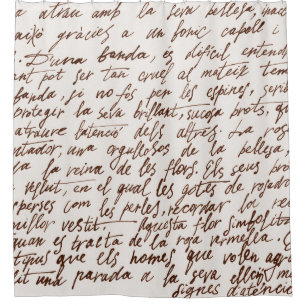 atrau amb la seva bellesa
això gràcies a un fonic capell i
. D'una banda, és difícil entend
nt pot ser tan cruel al mateix tem
banda, si no fos per les espines, seri
protegir la seva brillant, sucosa prots, qu
atraure l'atenció dels altres. La ros
ntador, una orgullosa de la bellesa
la reina de les flors. Els seus p
vellut, en el qual les gotes de rosado
sperses com les perles, recordar la re
millor vestit. Aquesta flor simbolitz
quan es tracta de la roja vermella. E
tiqus que els homes que volen agr
it una parada a la seva
signes d'atenció